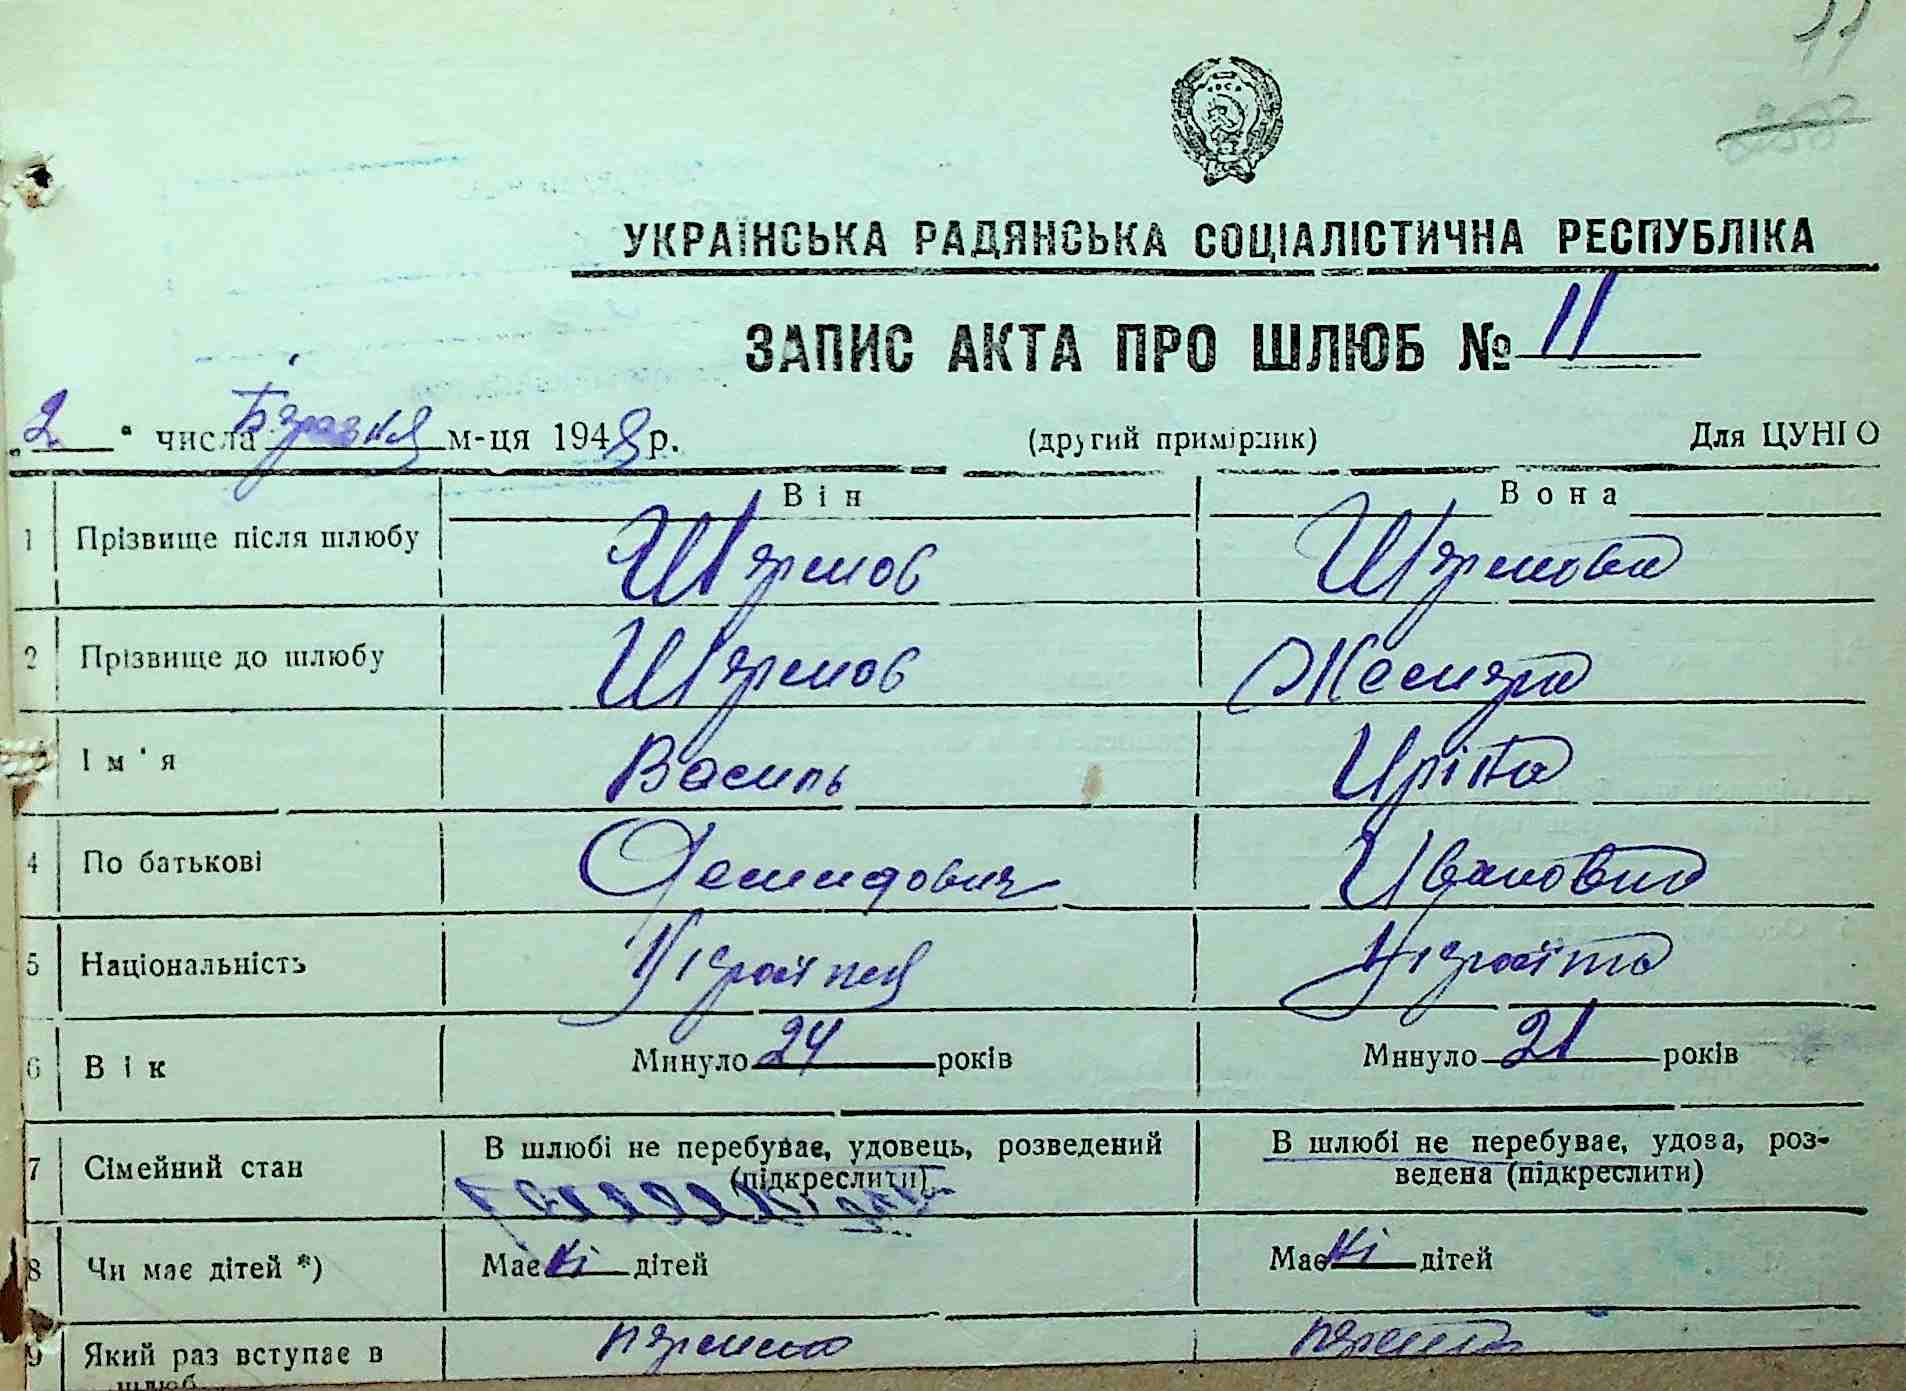 11
258
УКРАЇНСЬКА РАДЯНСЬКА СОЦІАЛІСТИЧНА РЕСПУБЛІКА
ЗАПИС АКТА ПРО ШЛЮБ № 11
„2“ числа м-ця 1948 р. (другий примірник) Для ЦУНГО
Він Вона
1 Прізвище після шлюбу
2 Прізвище до шлюбу
Ім'я Василь Иріна
4 По батькові Демидович Ивановна
5 Національність Українец Українка
6 Вік Минуло 24 років Минуло 21 років
7 Сімейний стан В шлюбі не перебуває, удовець, розведений В шлюбі не перебуває, удова, роз-
(підкреслити) ведена (підкреслити)
8 Чи має дітей *) Має ні дітей Має ні дітей
9 Який раз вступає в
шлюб